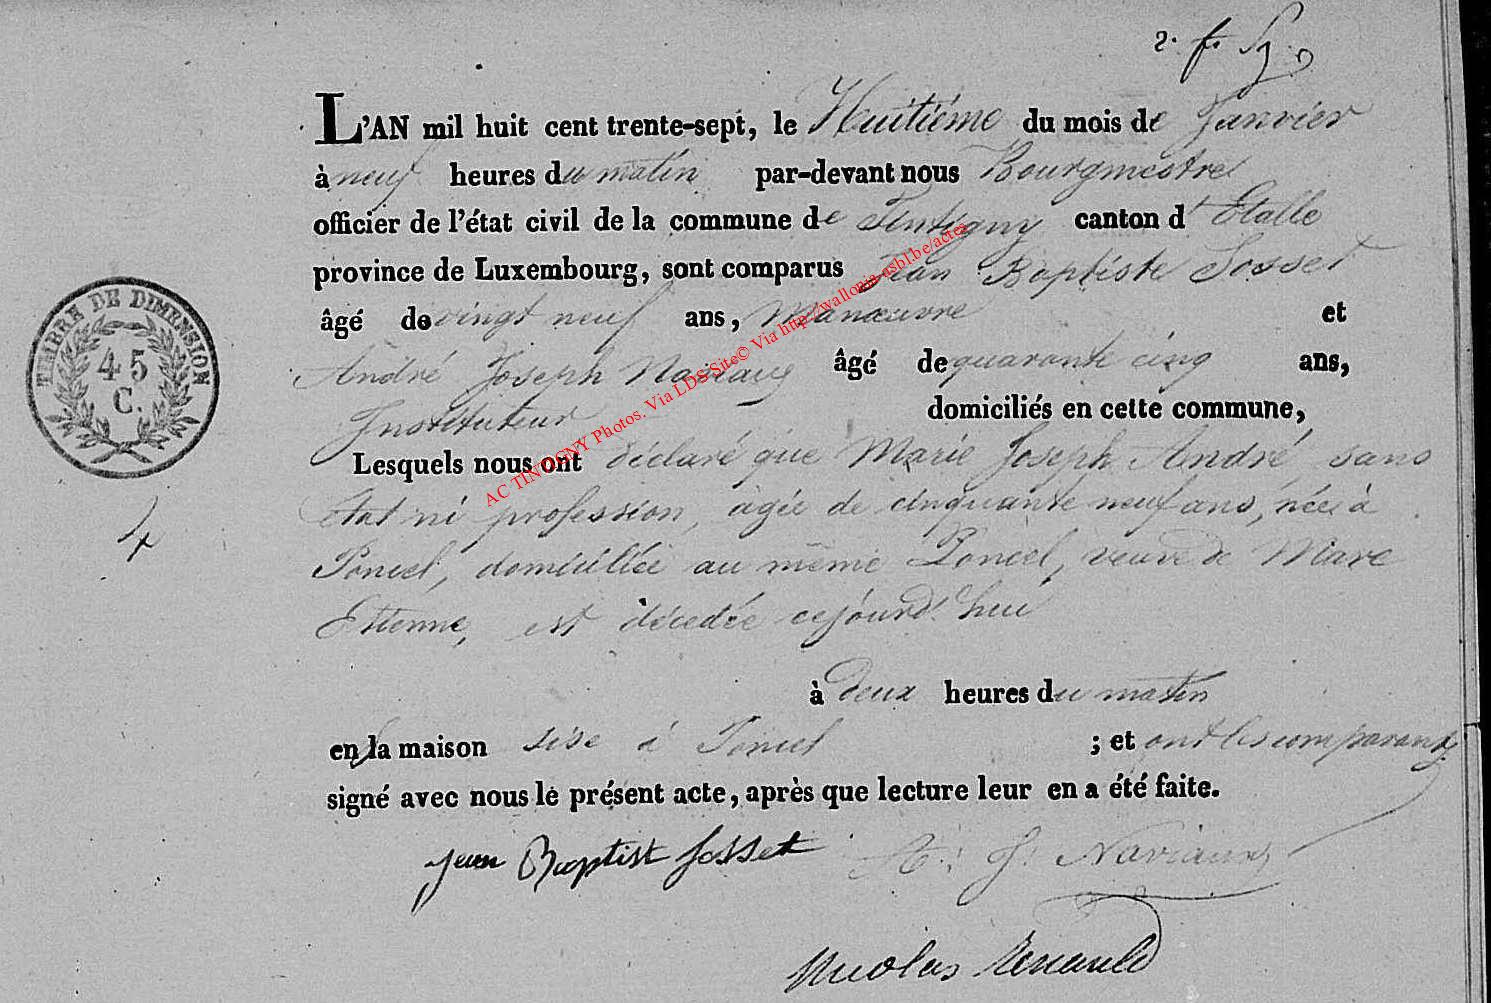 2. f.
L'AN mil huit cent trente-sept, le Huitième du mois de Janvier
à neuf heures du matin par-devant nous Bourgmestre
officier de l'état civil de la commune de Tintigny canton d'Etalle
province de Luxembourg, sont comparus Jean Baptiste Josset
âgé de vingt neuf ans, Manœuvre et
André Joseph Naviaux âgé de quarante cinq ans,
Instituteur domiciliés en cette commune,
Lesquels nous ont déclaré que Marie Joseph André, sans
état ni profession, agée de cinquante neuf ans, née à
Poncel, domiciliée au même Poncel, veuve de Marc
Etienne, est décedée cejourd'hui
à deux heures du matin
en la maison sise à Poncel ; et ont les comparants
signé avec nous le présent acte, après que lecture leur en a été faite.
jean Baptist josset A. J. Naviaux
Nicolas Renauld
TIMBRE DE DIMENSION
45
C.
4
AC TINTIGNY Photos. Via LDS Site© Via http://wallonia-asbl.be/actes